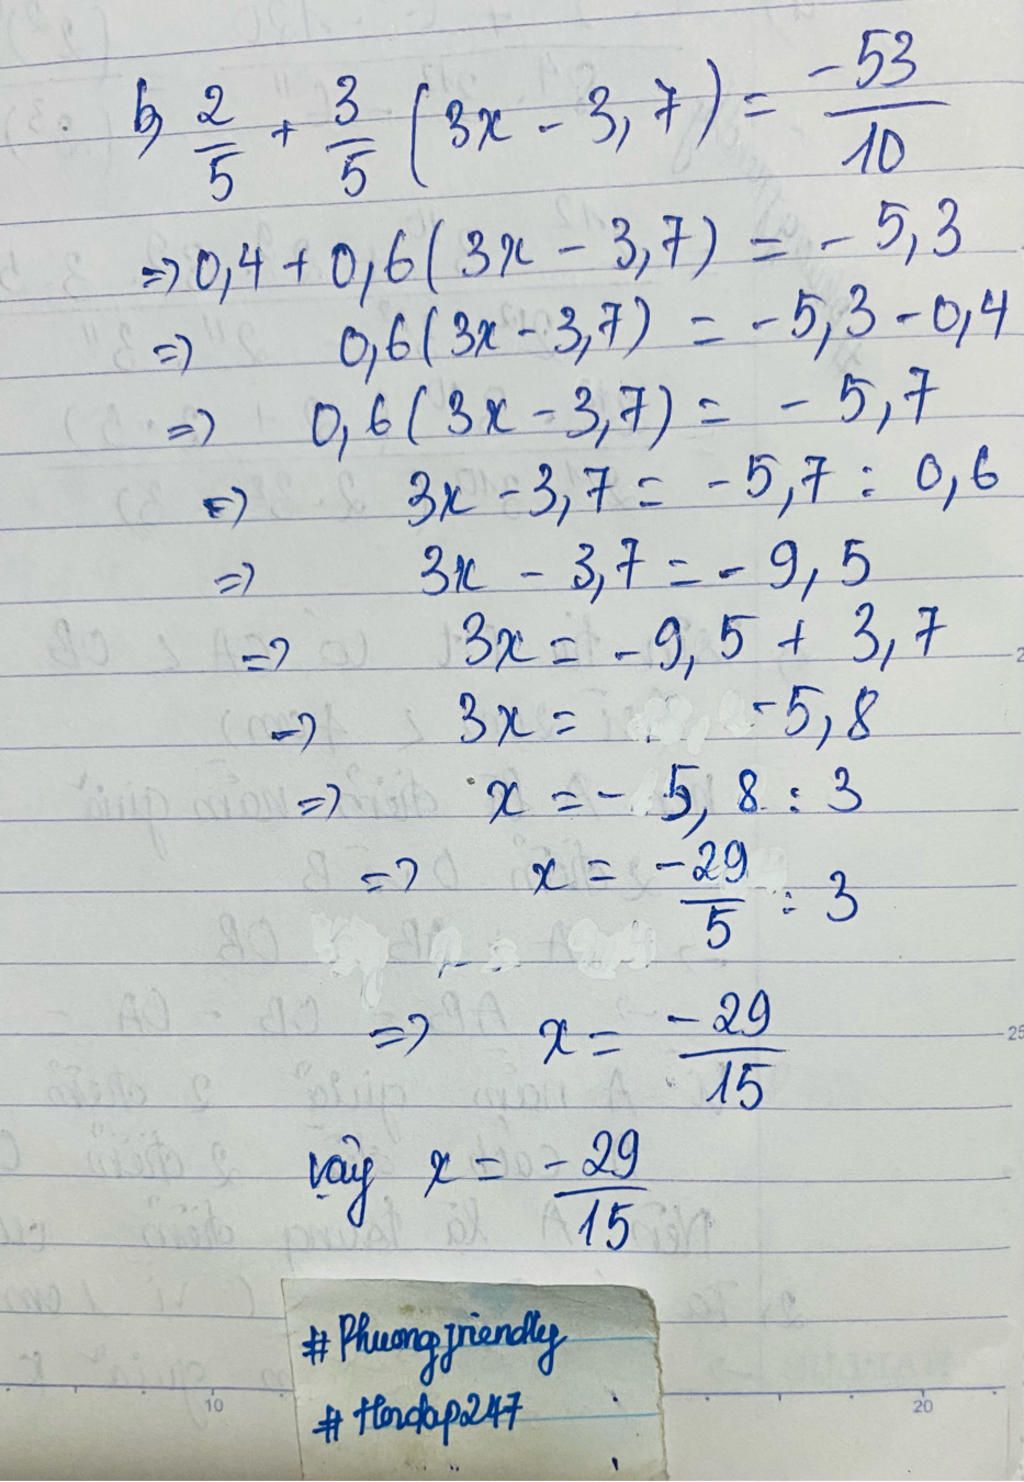 b, 2/5 + 3/5 (3x - 3,7) = -53/10
=> 0,4 + 0,6(3x - 3,7) = - 5,3
=> 0,6(3x - 3,7) = - 5,3 - 0,4
=> 0,6(3x - 3,7) = - 5,7
=> 3x - 3,7 = - 5,7 : 0,6
=> 3x - 3,7 = - 9,5
=> 3x = - 9,5 + 3,7
=> 3x = -5,8
=> x = - 5,8 : 3
=> x = -29/5 : 3
=> x = -29/15
vậy x = -29/15
#Phuongfriendly
#Hoidap247
10 20
25